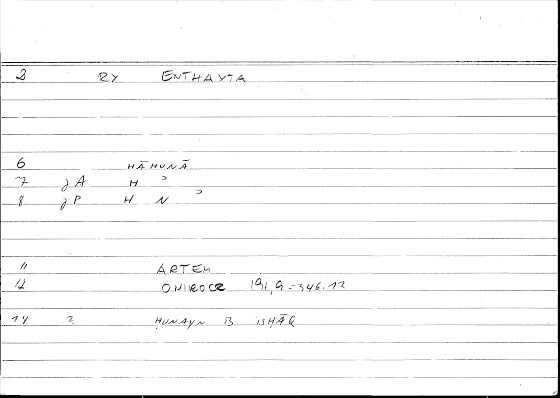 3 RY ENTHAYTA
6 HĀHUNĀ
7 JA H ɔ
8 JP H N ɔ
11 ARTEM
12 ONIROCR 191,9=346.12
14 2 ḤUNAYN B ISḤĀQ